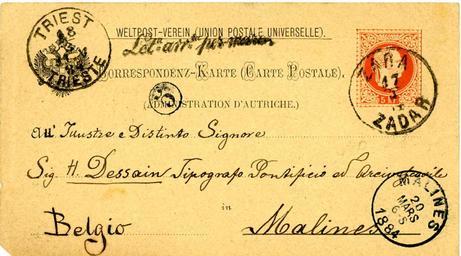 WELTPOST-VEREIN (UNION POSTALE UNIVERSELLE).
CORRESPONDENZ-KARTE (CARTE POSTALE),
(ADMINISTRATION D'AUTRICHE).
TRIEST
TRIESTE
ZARA
17
3
ZADAR
All' Illustre e Distinto Signore
Sig. H. Dessain Tipografo Pontificio ed Arcivescovile
in
Belgio Malines
MALINES
20
MARS
6-S
1884